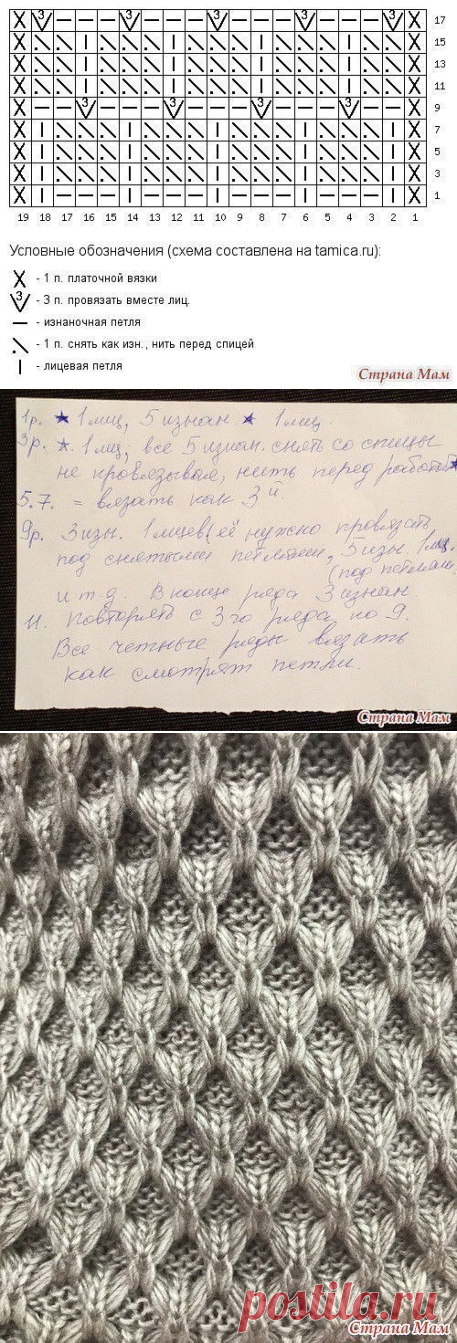 3 3 3 3 3 17
15
13
11
3 3 3 3 9
7
5
3
1
19 18 17 16 15 14 13 12 11 10 9 8 7 6 5 4 3 2 1
Условные обозначения (схема составлена на tamica.ru):
X - 1 п. платочной вязки
3 - 3 п. провязать вместе лиц.
- изнаночная петля
- 1 п. снять как изн., нить перед спицей
- лицевая петля
Страна Мам
1р. ★ 1 лиц, 5 изнан ★ 1 лиц.
3р. ☆. 1 лиц; все 5 изнан. снять со спицы
не провязывая, нить перед работой ★
5.7. = вязать как 3й.
9р. 3 изн. 1 лицев (её нужно провязать
под снятыми петлями, 5 изн. 1 лиц.
(под петлями
и т.д. В конце ряда 3 изнан
11. Повторять с 3го ряда по 9.
Все четные ряды вязать
как смотрят петли.
Страна Мам
postila.ru
Страна Мам